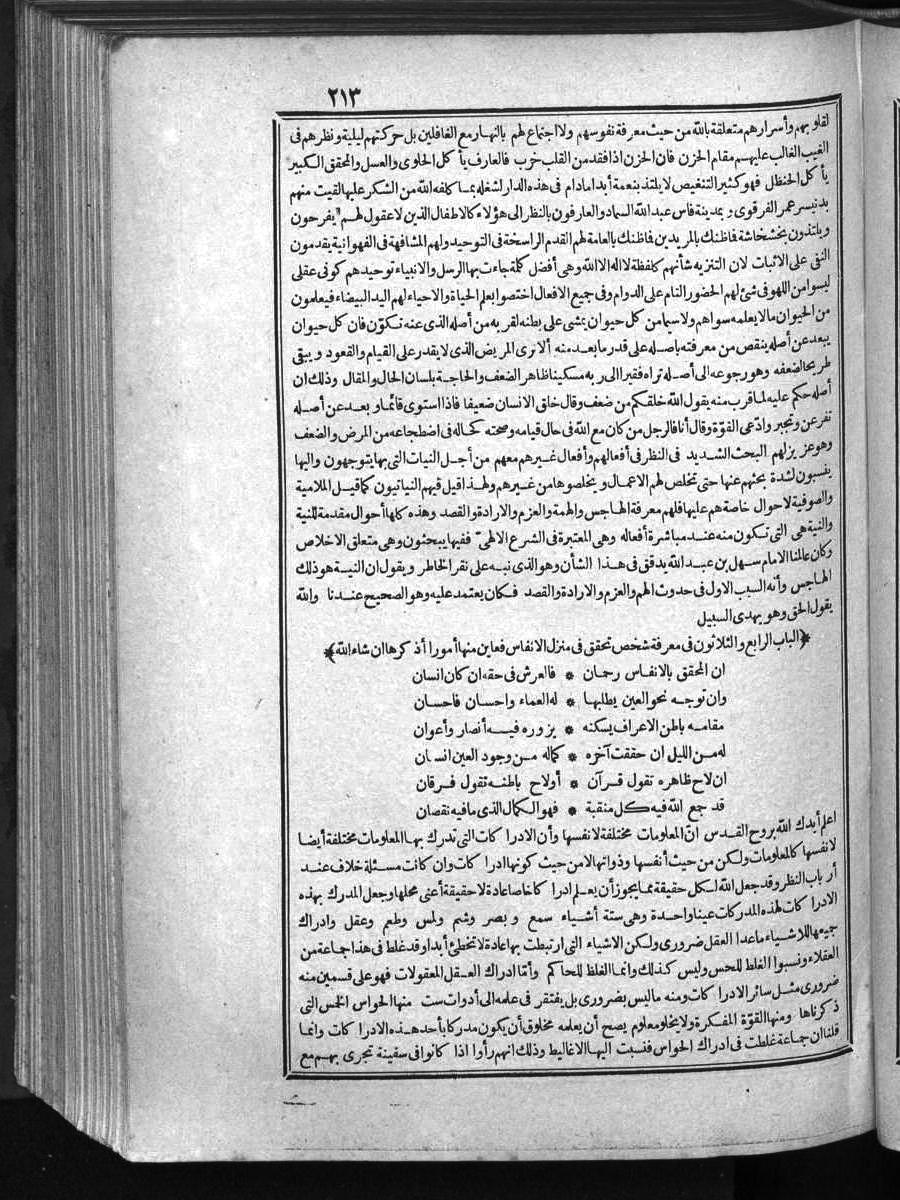 ٢١٣
لقلوبهم وأسرارهم متعلقة بالله من حيث معرفة نفوسهم ولا اجتماع لهم بالنهار مع الغافلين بل حركتهم ليلية ونظرهم فى
الغيب الغالب عليهم مقام الحزن فان الحزن اذا فقد من القلب خرب فالعارف يأ كل الحلوى والعسل والمحقق الكبير
يأ كل الحنظل فهو كثير التنغيص لا يلتذ بنعمة أبدا مادام فى هذه الدار لشغله بما كلفه الله من الشكر عليها لقيت منهم
بدنيسر عمر الفرقوى وبمدينة فاس عبد الله السماد والعارفون بالنظر الى هؤلاء كالاطفال الذين لا عقول لهم يفرحون
ويلتذون بخشخاشة فاظنك بالمريدين فاظنك بالعامة لهم القدم الراسخة فى التوحيد ولهم المشافهة فى الفهوانية يقدمون
النفى على الاثبات لان التنزيه شأنهم كلفظة لااله الا الله وهى أفضل كلمة جاءت بها الرسل والانبياء توحيدهم كونى عقلى
ليسوا من اللهو فى شئ لهم الحضور التام على الدوام وفى جميع الافعال اختصوا بعلم الحياة والاحياء لهم اليد البيضاء فيعلمون
من الحيوان مالا يعلمه سواهم ولاسيما من كل حيوان يمشى على بطنه لقربه من أصله الذى عنه تكوّن فان كل حيوان
يبعد عن أصله ينقص من معرفته بأصله على قدر ما بعد منه ألا ترى المريض الذى لا يقدر على القيام والقعود ويبقى
طريحا لضعفه وهو رجوعه الى أصله تراه فقيرا الى ربه مسكينا ظاهر الضعف والحاجة بلسان الحال والمقال وذلك ان
أصله حكم عليه لما قرب منه يقول الله خلقكم من ضعف وقال خلق الانسان ضعيفا فاذا استوى قائما وبعد عن أصله
تفرعن وتجبر وادّعى القوّة وقال أنا فالرجل من كان مع الله فى حال قيامه وصحته كحاله فى اضطجاعه من المرض والضعف
وهو عزيز لهم البحث الشديد فى النظر فى أفعالهم وأفعال غيرهم معهم من أجل النيات التى بها يتوجهون واليها
ينسبون لشدة بحثهم عنها حتى تخلص لهم الاعمال ويخلصوها من غيرهم ولهذا قيل فيهم النياتيون كما قيل الملامية
والصوفية لاحوال خاصة هم عليها فلهم معرفة الهاجس والهمة والعزم والارادة والقصد وهذه كلها أحوال مقدمة للنية
والنية هى التى تكون منه عند مباشرة أفعاله وهى المعتبرة فى الشرع الالهىّ ففيها يبحثون وهى متعلق الاخلاص
وكان عالمنا الامام سهل بن عبد الله يدقق فى هذا الشأن وهو الذى نبه على نقر الخاطر ويقول ان النية هو ذلك
الهاجس وأنه السبب الاول فى حدوث الهم والعزم والارادة والقصد فكان يعتمد عليه وهو الصحيح عندنا والله
يقول الحق وهو يهدى السبيل
﴿الباب الرابع والثلاثون فى معرفة شخص تحقق فى منزل الانفاس فعاين منها أمورا أذكرها ان شاء الله﴾
ان المحقق بالانفاس رحمان * فالعرش فى حقه ان كان انسان
وان توجه نحو العين يطلبها * له العماء واحسان فاحسان
مقامه باطن الاعراف يسكنه * يزوره فيه أنصار وأعوان
له من الليل ان حققت آخره * كماله من وجود العين انسان
ان لاح ظاهره تقول قرآن * أولاح باطنه تقول فرقان
قد جمع الله فيه كل منقبة * فهو الكمال الذى مافيه نقصان
اعلم أيدك الله بروح القدس انّ المعلومات مختلفة لانفسها وأن الادرا كات التى تدرك بها المعلومات مختلفة أيضا
لانفسها كالمعلومات ولكن من حيث أنفسها وذواتها لا من حيث كونها ادرا كات وان كانت مسئلة خلاف عند
أرباب النظر وقد جعل الله لكل حقيقة مما يجوز أن يعلم ادرا كا خاصا عادة لا حقيقة أعنى محلها وجعل المدرك بهذه
الادرا كات لهذه المدركات عينا واحدة وهى ستة أشياء سمع وبصر وشم ولمس وطعم وعقل وادراك
جميعها للاشياء ماعدا العقل ضرورى ولكن الاشياء التى ارتبطت بها عادة لا تخطئ أبدا وقد غلط فى هذا جماعة من
العقلاء ونسبوا الغلط للحس وليس كذلك وانما الغلط للحاكم وأمّا ادراك العقل المعقولات فهو على قسمين منه
ضرورى مثل سائر الادرا كات ومنه ماليس بضرورى بل يفتقر فى علمه الى أدوات ست منها الحواس الخمس التى
ذكرناها ومنها القوّة المفكرة ولا يخلو معلوم يصح أن يعلمه مخلوق أن يكون مدركا بأحد هذه الادرا كات وانما
قلنا ان جماعة غلطت فى ادراك الحواس فنسبت اليها الاغاليط وذلك انهم رأوا اذا كانوا فى سفينة تجرى بهم مع